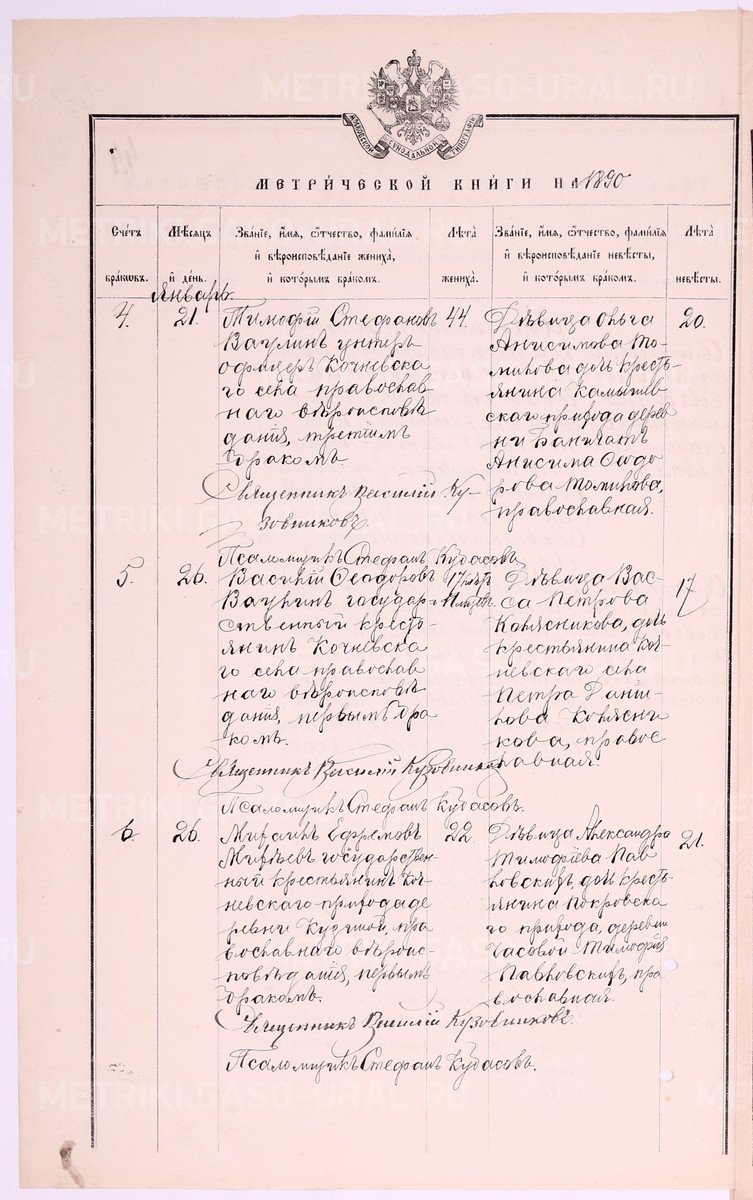 МОСКОВСКОЙ СѴНОДАЛЬНОЙ ТИПОГРАФІИ
МЕТРИ́ЧЕСКОЙ КНИ́ГИ НА 1890
Сче́тъ бра́кѡвъ.
Мѣ́сѧцъ и҆ де́нь.
Зва́нїе, и҆́мѧ, ѻ҆́тчество, фами́лїѧ и҆ вѣроисповѣ́данїе жениха̀, и҆ кото́рымъ бра́комъ.
Лѣ́та жениха̀.
Зва́нїе, и҆́мѧ, ѻ҆́тчество, фами́лїѧ и҆ вѣроисповѣ́данїе невѣ́сты, и҆ кото́рымъ бра́комъ.
Лѣ́та невѣ́сты.
Январь.
4.
21.
Тимофій Стефановъ
Ваулинъ унтеръ
офицеръ Кочневска
го села православ
наго вѣроисповѣ
данія, третіимъ
бракомъ.
44.
Дѣвица Ольга
Анисимова То-
милова дочь кресть-
янина Камышев
скаго прихода дерев
ни
Анисима Ѳеодо
рова Томилова,
православная.
20.
Священникъ Василій Ку-
зовниковъ.
Псаломщикъ Стефанъ Кудасовъ.
5.
26.
Василій Ѳеодоровъ
Ваулинъ государ-
ственный кресть-
янинъ Кочневска
го села православ
наго вѣроисповѣ
данія, первымъ бра
комъ.
17 лѣтъ
Дѣвица Вас-
са Петрова
Колясникова, дочь
крестьянина Коч-
невскаго села
Петра Дании-
лова Колясни
кова, правос
лавная.
17
Священникъ Василій Кузовниковъ
Псаломщикъ Стефанъ Кудасовъ.
6.
26.
Михаилъ Ефремовъ
Михѣевъ государствен-
ный крестьянинъ Коч-
невскаго прихода де
ревни Кузиной, пра
вославнаго вѣроис-
повѣданія, первымъ
бракомъ.
22.
Дѣвица Александра
Тимофіева Пав
ловскихъ, дочь кресть-
янина Покровска
го прихода, деревни
Часовой Тимофія
Павловскихъ, пра
вославная.
21.
Священникъ Василій Кузовниковъ.
Псаломщикъ Стефанъ Кудасовъ.
METRIKI.GASO-URAL.RU